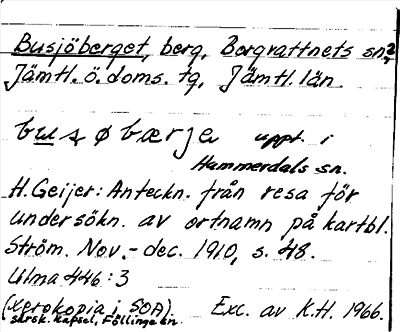 Busjöberget, berg, Borgvattnets sn?,
Jämtl. ö. doms. tg, Jämtl. län.
busøbærje uppt. i
Hammerdals sn.
H. Geijer: Anteckn. från resa för
undersökn. av ortnamn på kartbl.
Ström. Nov.-dec. 1910, s. 48.
Ulma 446:3
(xerokopia i SOA) Exc. av K.H. 1966.
särsk. kapsel, Föllinge sn.